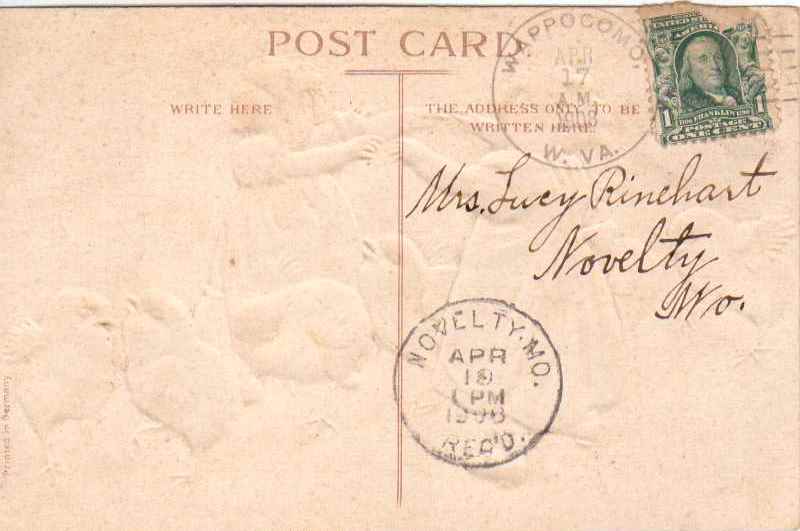 POST CARD
WRITE HERE
THE ADDRESS ONLY TO BE
WRITTEN HERE
WAPPOCOMO.
APR
17
A.M.
1908
W. VA.
UNITED STATES OF
AMERICA
1 1
FRANKLIN
POSTAGE
ONE CENT
Mrs. Lucy Rinehart
Novelty
Mo.
NOVELTY. MO.
APR
19
1 PM
1908
REC'D.
Printed in Germany